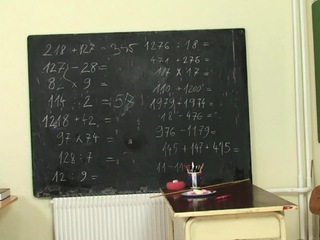 218 + 127 = 345
127 - 28 =
82 × 9 =
114 : 2 = 57
1218 + 42 =
97 × 74 =
128 : 7 =
12 : 9 =
1276 : 18 =
421 + 276 =
117 × 17 =
110 + 1200 =
1979 + 1974 =
18 - 476 =
976 - 1179 =
145 + 147 + 415 =